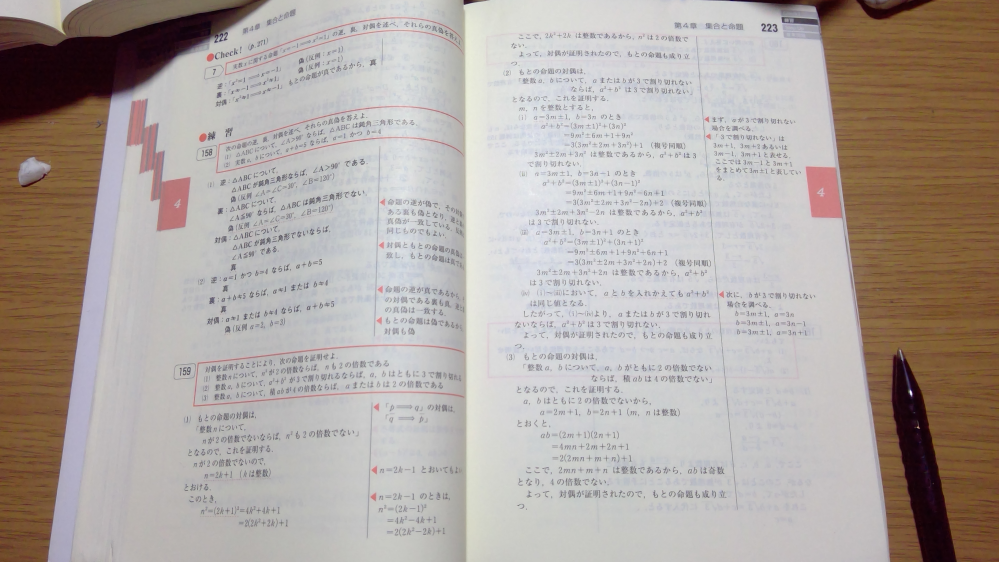 222
第4章 集合と命題
●Check! (p.371)
7
逆：「x²=1 ⟹ x=-1」 偽 (反例：x=1)
対偶：「x²≠1 ⟹ x≠-1」 もとの命題が真であるから，真
●練 習
158
次の命題の逆，裏，対偶を述べ，それらの真偽を答えよ．
(1) △ABC について，∠A>90° ならば，△ABC は鈍角三角形である．
(2) 実数 a, b について，a+b=5 ならば，a=1 かつ b=4
(1) 逆：△ABC について，
△ABC が鈍角三角形ならば，∠A>90° である．
偽 (反例 ∠A=∠C=30°, ∠B=120°)
裏：△ABC について，
∠A≦90° ならば，△ABC は鈍角三角形でない．
偽 (反例 ∠A=∠C=30°, ∠B=120°)
対偶：△ABC について，
△ABC が鈍角三角形でないならば，
∠A≦90° である．
真
(2) 逆：a=1 かつ b=4 ならば，a+b=5
真
裏：a+b≠5 ならば，a≠1 または b≠4
真
対偶：a≠1 または b≠4 ならば，a+b≠5
偽 (反例 a=2, b=3)
◀命題の逆が偽で，その対偶で
ある裏も偽となり，逆と裏の
真偽が一致している．反例も
同じものでもよい．
◀対偶ともとの命題の真偽は一
◀命題の逆が真であるから，
の対偶である裏も真，逆と裏
の真偽は一致する．
◀もとの命題は偽であるから，
対偶も偽
159
対偶を証明することにより，次の命題を証明せよ．
(1) 整数 n について，n² が 2 の倍数ならば，n も 2 の倍数である
(2) 整数 a, b について，a²+b² が 3 で割り切れるならば，a, b はともに 3 で割り切れる
(3) 整数 a, b について，積 ab が 4 の倍数ならば，a または b は 2 の倍数である
(1) もとの命題の対偶は，
「整数 n について，
n が 2 の倍数でないならば，n² も 2 の倍数でない」
となるので，これを証明する．
n が 2 の倍数でないので，
n=2k+1 (k は整数)
とおける．
このとき，
n²=(2k+1)²=4k²+4k+1
=2(2k²+2k)+1
◀「p⟹q」の対偶は，
「q̄ ⟹ p̄」
◀n=2k-1 とおいてもよい
◀n=2k-1 のときは，
n²=(2k-1)²
=4k²-4k+1
=2(2k²-2k)+1
4
第4章 集合と命題
223
ここで，2k²+2k は整数であるから，n² は 2 の倍数で
ない．
よって，対偶が証明されたので，もとの命題も成り立
つ．
(2) もとの命題の対偶は，
「整数 a, b について，a または b が 3 で割り切れない
ならば，a²+b² は 3 で割り切れない」
となるので，これを証明する．
m, n を整数とすると，
(i) a=3m±1, b=3n のとき
a²+b²=(3m±1)²+(3n)²
=9m²±6m+1+9n²
=3(3m²±2m+3n²)+1 (複号同順)
3m²±2m+3n² は整数であるから，a²+b² は 3
で割り切れない．
(ii) a=3m±1, b=3n-1 のとき
a²+b²=(3m±1)²+(3n-1)²
=9m²±6m+1+9n²-6n+1
=3(3m²±2m+3n²-2n)+2 (複号同順)
3m²±2m+3n²-2n は整数であるから，a²+b²
は 3 で割り切れない．
(iii) a=3m±1, b=3n+1 のとき
a²+b²=(3m±1)²+(3n+1)²
=9m²±6m+1+9n²+6n+1
=3(3m²±2m+3n²+2n)+2 (複号同順)
3m²±2m+3n²+2n は整数であるから，a²+b²
は 3 で割り切れない．
(iv) (i)〜(iii)において，a と b を入れかえても a²+b²
は同じ値となる．
したがって，(i)〜(iv)より，a または b が 3 で割り切れ
ないならば，a²+b² は 3 で割り切れない．
よって，対偶が証明されたので，もとの命題も成り立
つ．
(3) もとの命題の対偶は，
「整数 a, b について，a, b がともに 2 の倍数でない
ならば，積 ab は 4 の倍数でない」
となるので，これを証明する．
a, b はともに 2 の倍数でないから，
a=2m+1, b=2n+1 (m, n は整数)
とおくと，
ab=(2m+1)(2n+1)
=4mn+2m+2n+1
=2(2mn+m+n)+1
ここで，2mn+m+n は整数であるから，ab は奇数
となり，4 の倍数でない．
よって，対偶が証明されたので，もとの命題も成り立
つ．
◀まず，a が 3 で割り切れない
場合を調べる．
◀「3 で割り切れない」は
3m+1, 3m+2 あるいは
3m-1, 3m+1 と表せる．
ここでは 3m-1 と 3m+1
をまとめて 3m±1 と表してい
る．
◀次に，b が 3 で割り切れない
場合を調べる．
b=3m±1, a=3n
b=3m±1, a=3n-1
b=3m±1, a=3n+1
4